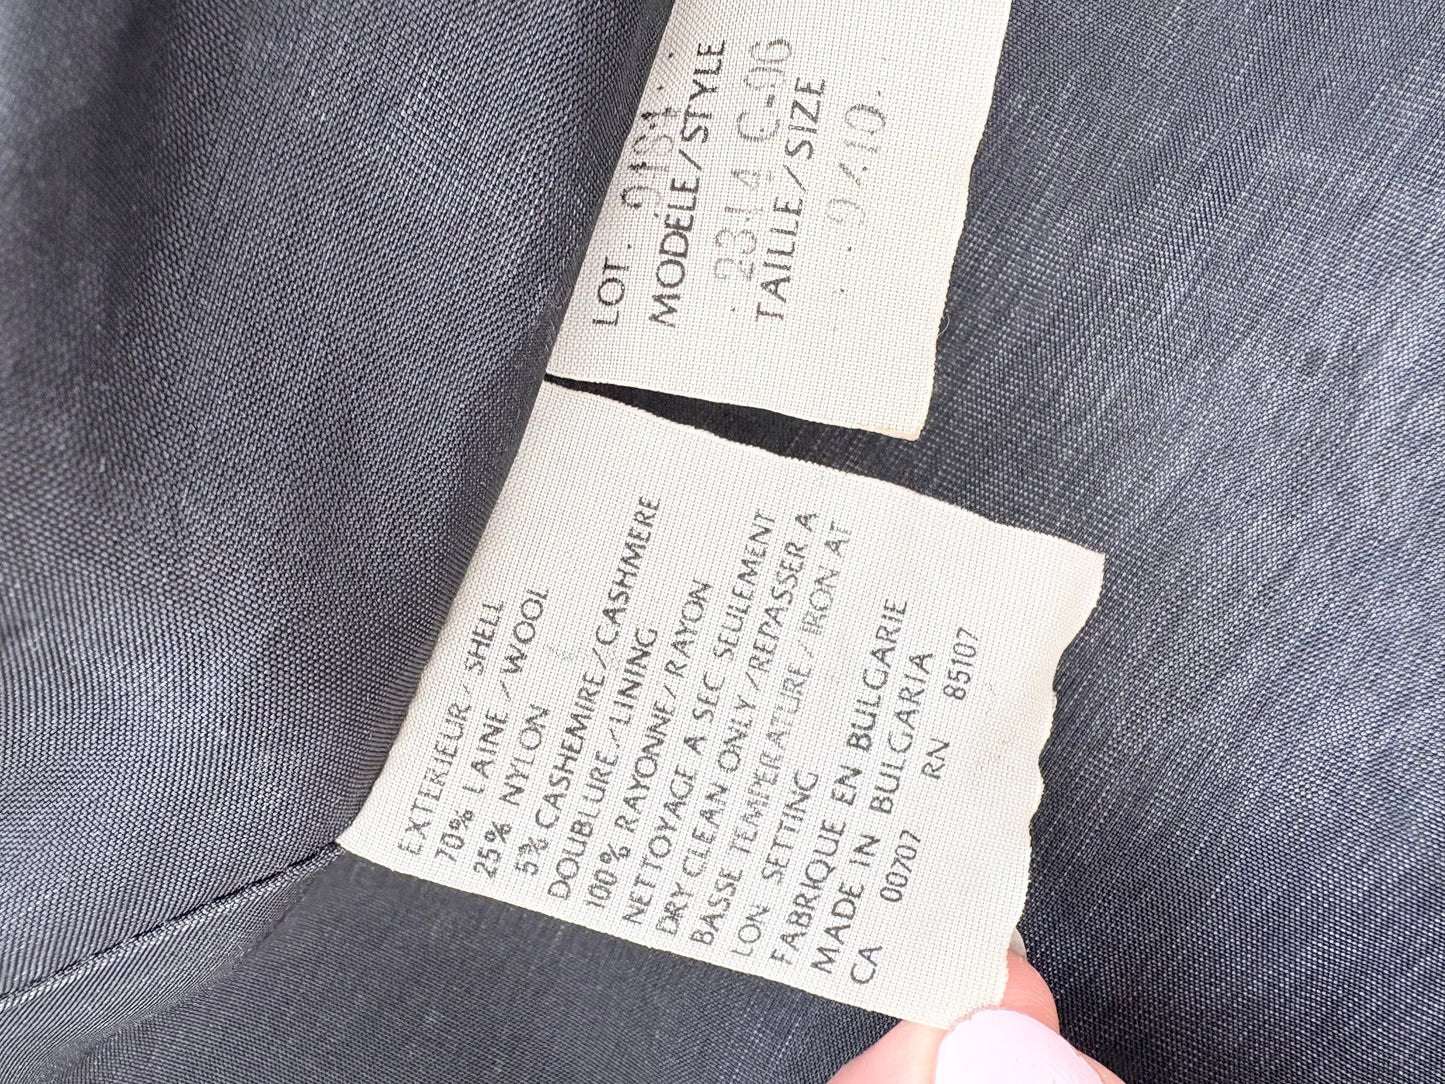 LOT
MODÈLE/STYLE
2314 C-06
TAILLE/SIZE
9/10
EXTERIEUR/SHELL
70% LAINE/WOOL
25% NYLON
5% CASHEMIRE/CASHMERE
DOUBLURE/LINING
100% RAYONNE/RAYON
NETTOYAGE A SEC SEULEMENT
DRY CLEAN ONLY/REPASSER A
BASSE TEMPERATURE/IRON AT
LON SETTING
FABRIQUE EN BULGARIE
MADE IN BULGARIA
CA 00707 RN 85107